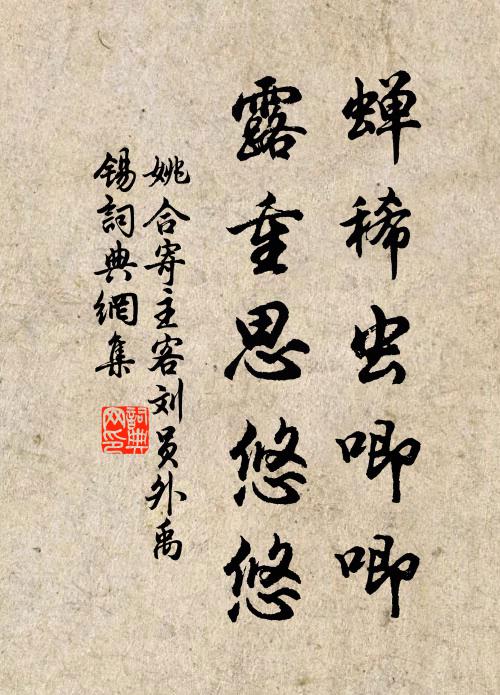 蝉稀虫唧唧
露重思悠悠
姚合寄主客刘员外禹
锡詞典網集
詞典
网印